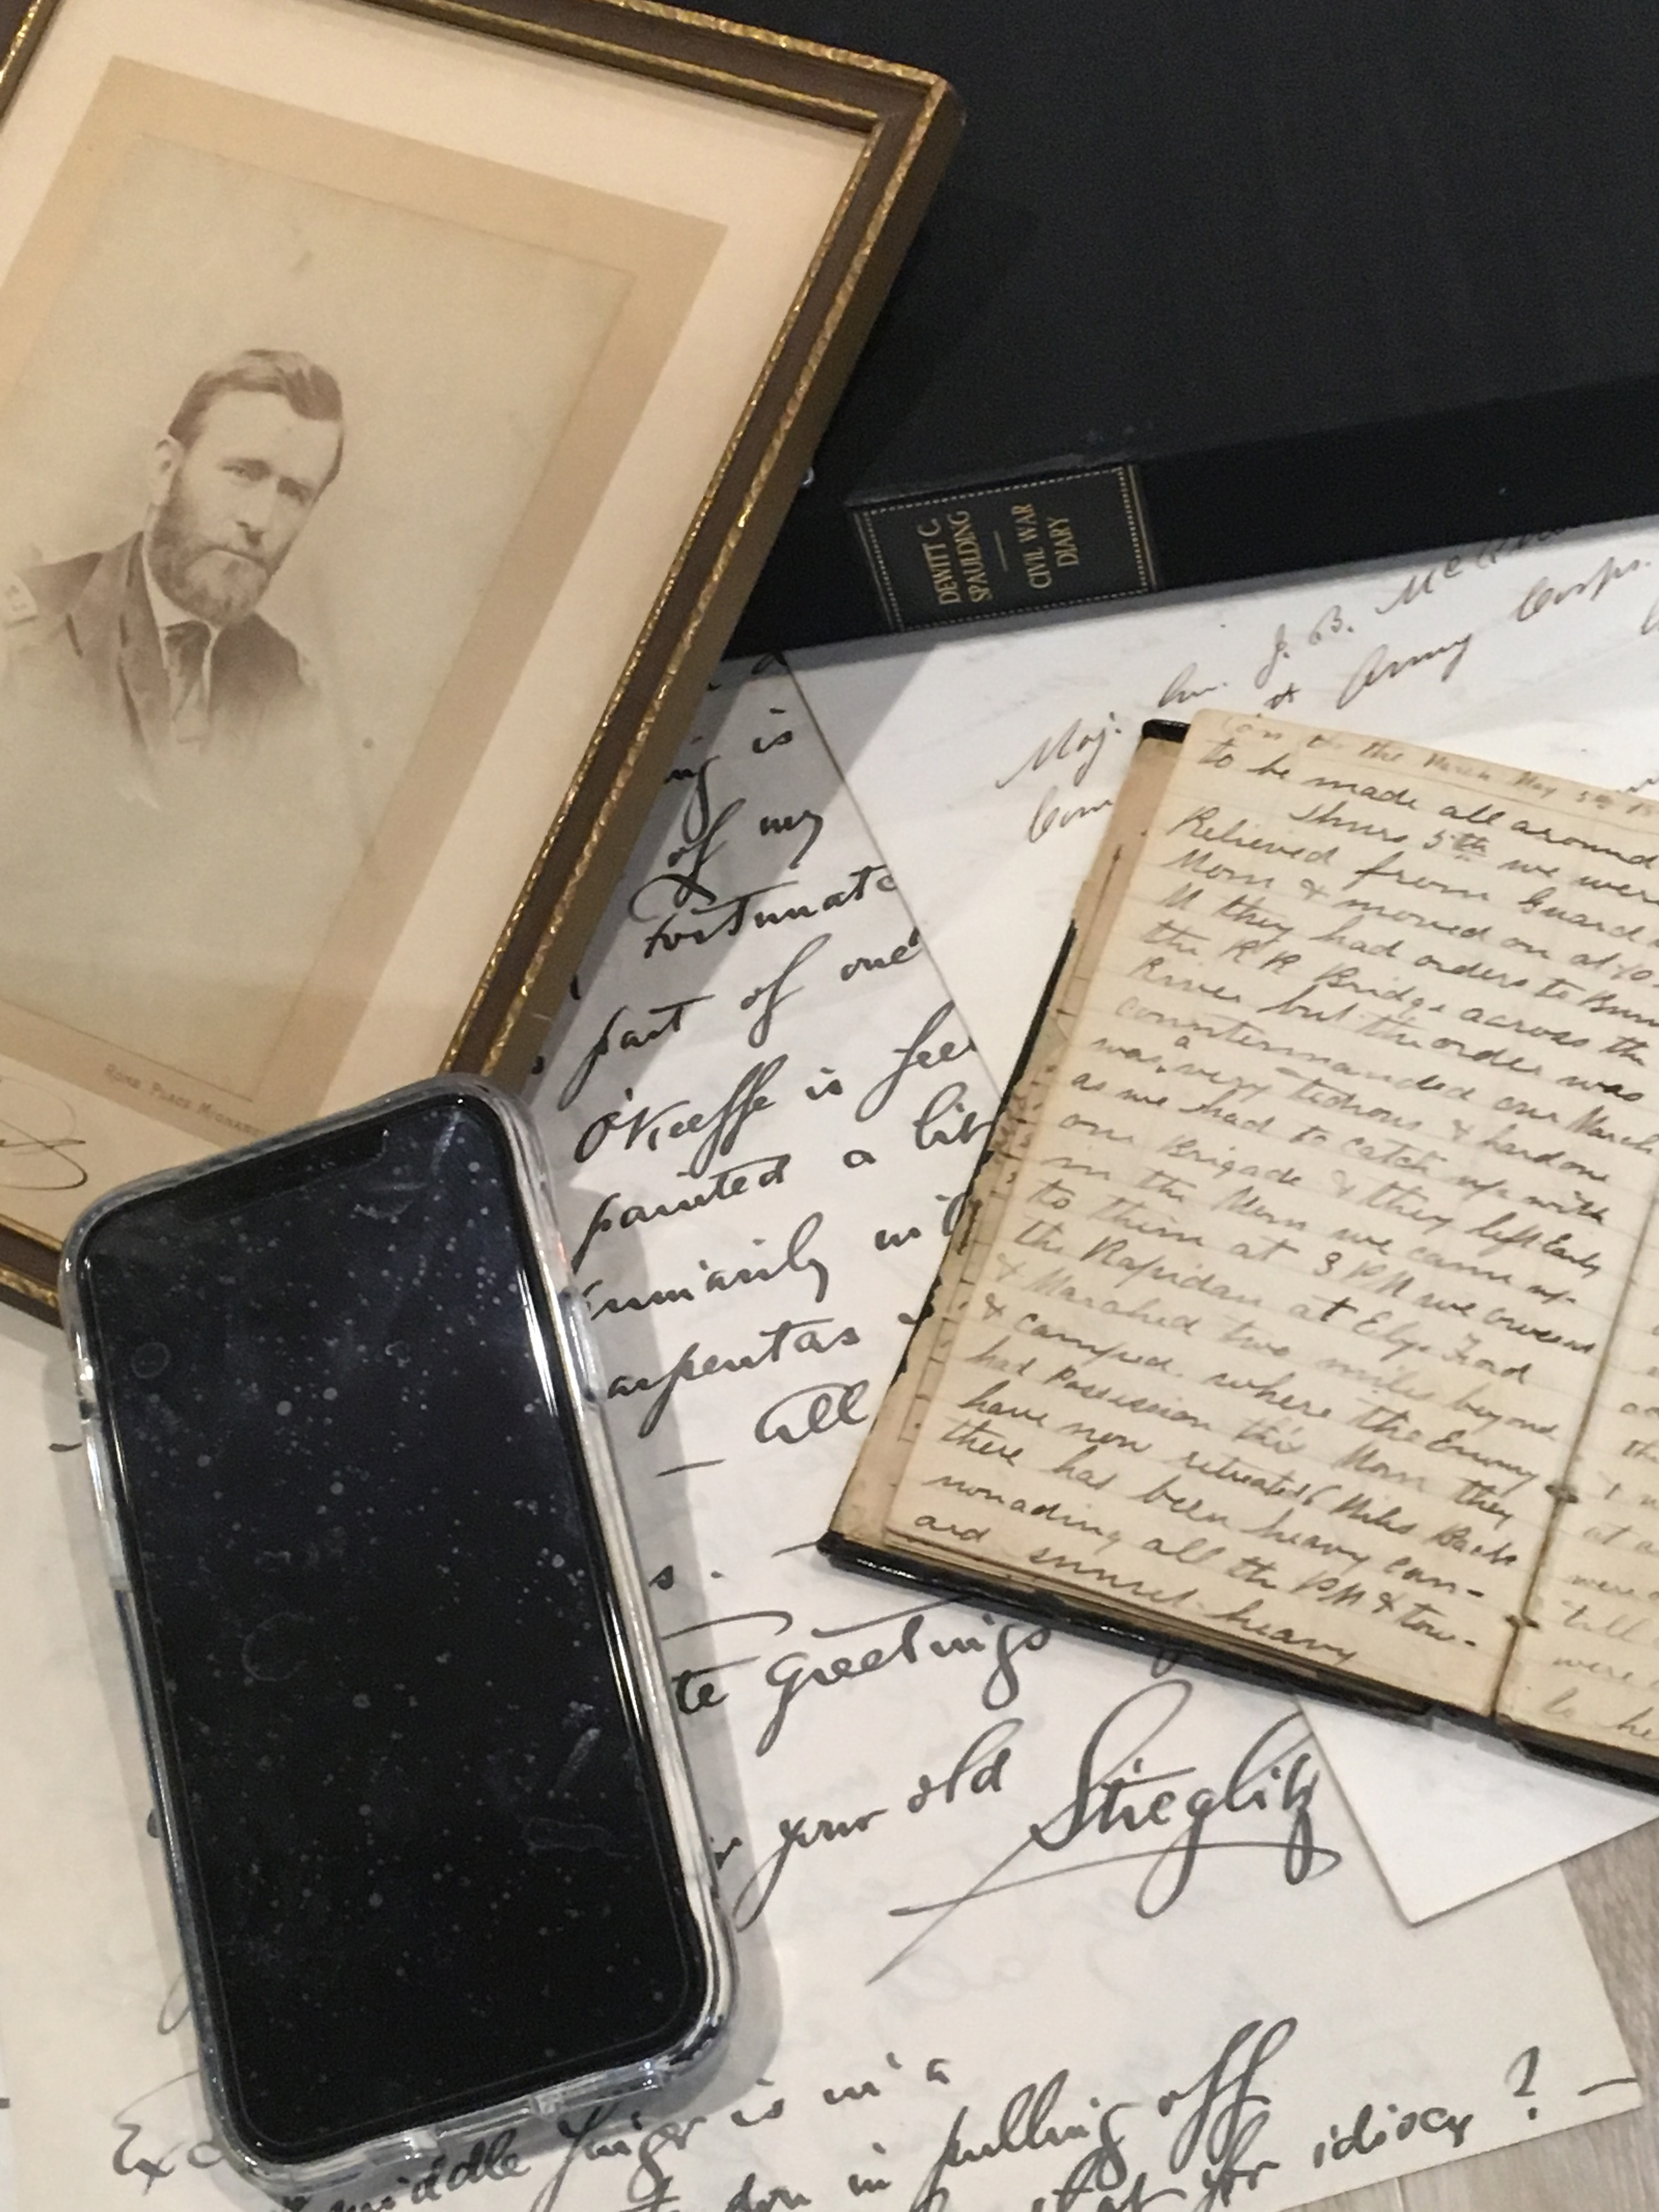 DEWITT C
SPAULDING
CIVIL WAR
DIARY
Maj. Gen. J. B.
Army Corps.
to be made all around
Thurs 5th we were
Relieved from Guard
Morn & moved on at 10
M they had orders to Burn
the R R Bridge across the
River but the order was
countermanded our March
was a very tedious & hard one
as we had to catch up with
our Brigade & they left Early
in the Morn we came up
to them at 3 PM we crossed
the Rapidan at Elys Ford
& Marched two miles beyond
& camped where the Enemy
had Possession this Morn they
have now retreated 6 Miles Back
there has been heavy can-
nonading all the PM & tow-
ard sunset heavy
were
till
were
is
of my
fortunate
part of one
O'Keeffe is
painted a
All
Greetings
your old
Stieglitz
middle finger is in a
in pulling off
that for idiocy ? —